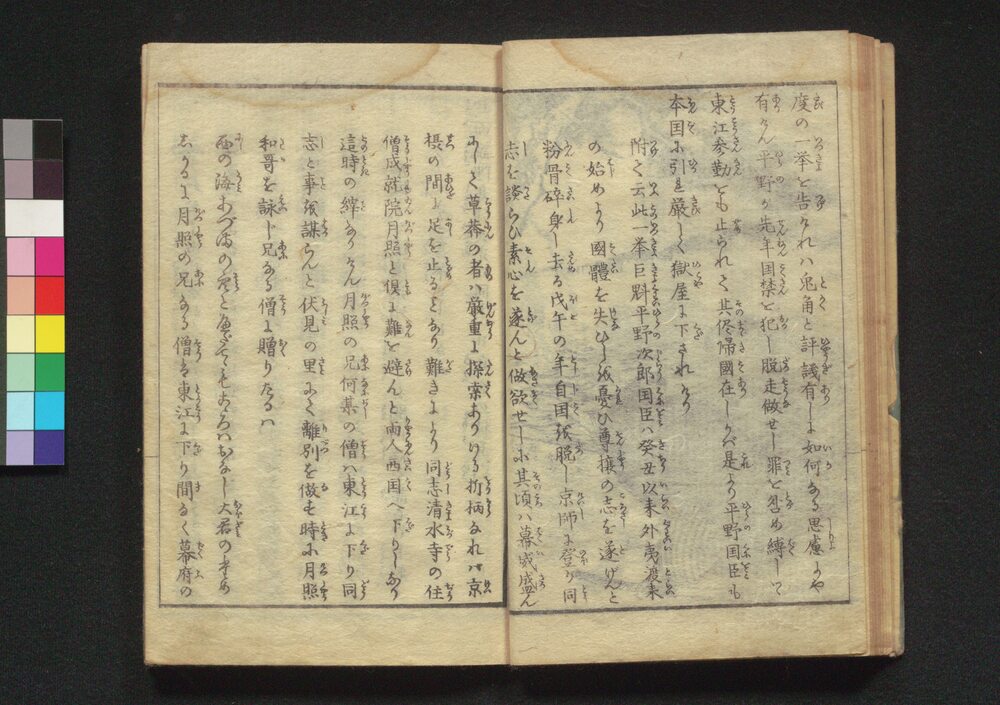 度の一挙を告ければ兎角と評議有しに如何なる思慮にや
有けん平野が先年国禁を犯し脱走做せし罪を咎め縛して
東江参勤をも止られて其侭帰國在しかバ是より平野国臣も
本国に引れ厳しく獄屋に下されけり
附て云此一挙巨魁平野次郎国臣ハ癸丑以来外夷渡来
の始めより國體を失ひしを憂ひ尊攘の志を遂げんと
粉骨砕身し去る戊午の年自国を脱し京師に登り同
志を談らひ素心を遂んと做欲せしに其頃ハ幕威盛ん
にして草莽の者ハ厳重に探索ありける折柄なれバ京
摂の間に足を止ること難きにより同志清水寺の住
僧成就院月照と倶に難を避んと両人西国へ下りしなり
這時の緯なりけん月照の兄何某の僧ハ東江に下り同
志と事を謀らんと伏見の里にて離別を做す時に月照
和哥を詠じ兄なる僧に贈りたるハ
西の海あづまの空とかはれどもこころハおなじ大君のため
しかるに月照の兄なる僧は東江に下り間もなく幕府の